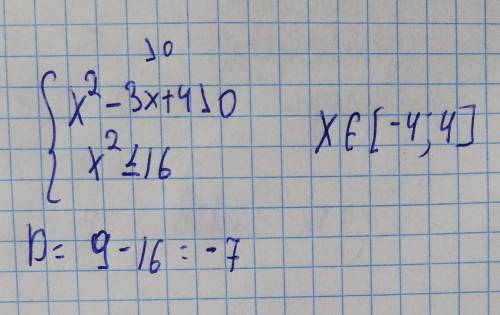 >0
{ x² - 3x + 4 > 0
x² ≤ 16
x ∈ [-4; 4]
D = 9 - 16 = -7